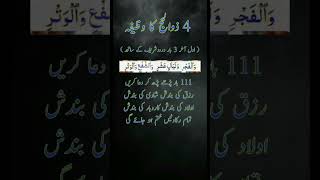 4 ذوالحج کا وظیفہ
( اول آخر 3 بار درود شریف کے ساتھ )
وَالۡفَجۡرِ وَلَیَالٍ عَشۡرٍ وَّالشَّفۡعِ وَالۡوَتۡرِ
111 بار پڑھے پڑھ کر دعا کریں
رزق کی بندش شادی کی بندش
اولاد کی بندش کاروبار کی بندش
تمام رکاوٹیں ختم ہو جائے گی